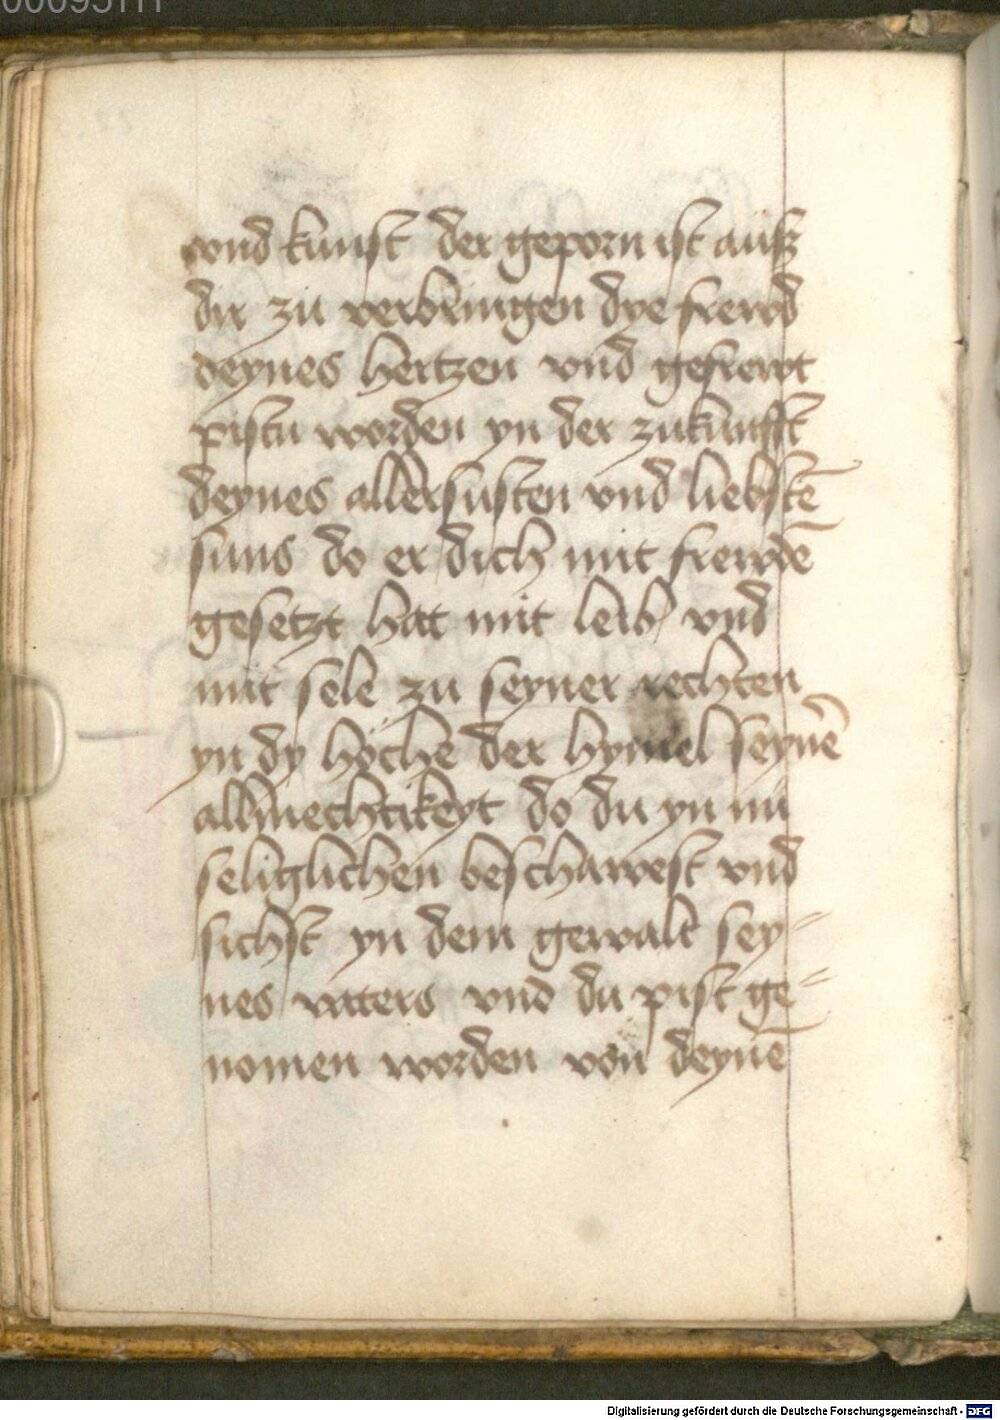 vnd kunst der geporn ist auß
dir zu verbringen dye frewd
deynes hertzen vnd gefrewt
pistu worden yn der zukunfft
deynes allersusten vnd liebstē
suns do er dich mit frewdē
gesetzt hat mit leib vnd
mit sele zu seyner rechten
yn dy höche der hymel seynē
allmechtikeyt do du yn nu
seliglichen beschawest vnd
sichst yn dem gewalt sey=
nes vaters vnd du pist ge=
nomen worden von deynē
Digitalisierung gefördert durch die Deutsche Forschungsgemeinschaft - DFG